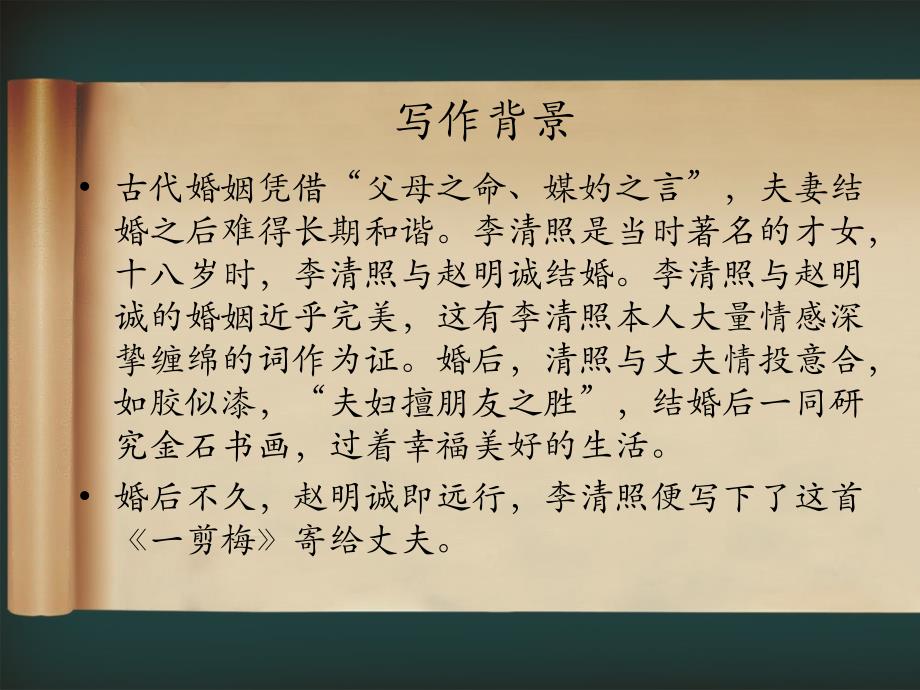 写作背景
• 古代婚姻凭借“父母之命、媒妁之言”，夫妻结
婚之后难得长期和谐。李清照是当时著名的才女，
十八岁时，李清照与赵明诚结婚。李清照与赵明
诚的婚姻近乎完美，这有李清照本人大量情感深
挚缠绵的词作为证。婚后，清照与丈夫情投意合，
如胶似漆，“夫妇擅朋友之胜”，结婚后一同研
究金石书画，过着幸福美好的生活。
• 婚后不久，赵明诚即远行，李清照便写下了这首
《一剪梅》寄给丈夫。